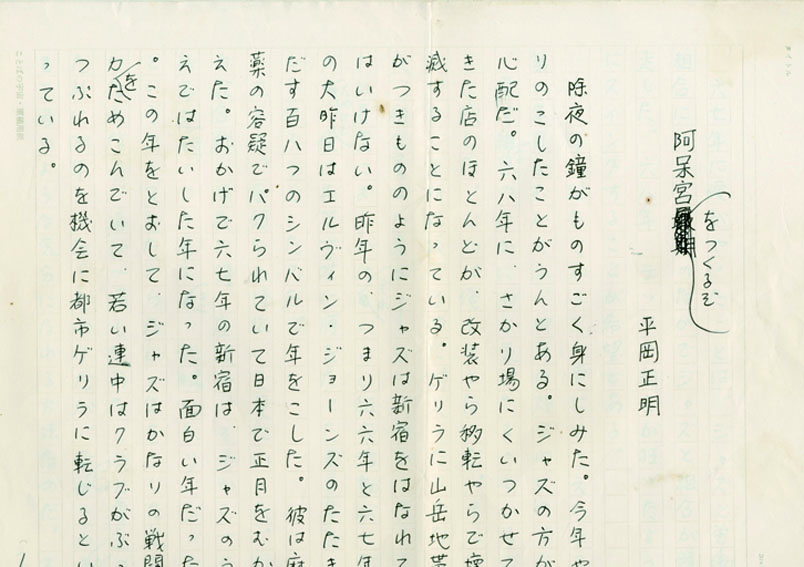 阿呆宮をつくるぞ
平岡正明
除夜の鐘がものすごく身にしみた。今年や
りのこしたことがうんとある。ジャズの方が
心配だ。六八年に、さかり場にくいつかせて
きた店のほとんどが、改装やら移転やらで壊
滅することになっている。ゲリラに山岳地帯
がつきもののようにジャズは新宿をはなれて
はいけない。昨年の、つまり六六年と六七年
の大昨日はエルヴィン・ジョーンズのたたき
だす百八つのシンバルで年をこした。彼は麻
薬の容疑でパクられていて日本で正月をむか
えた。おかげで六七年の新宿は、ジャズのう
えではたいした年になった。面白い年だった
。この年をとおして、ジャズはかなりの戦闘
力をためこんでいて、若い連中はクラブがぶっ
つぶれるのを機会に都市ゲリラに転じるとい
っている。